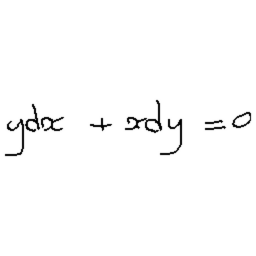 ydx + xdy = 0